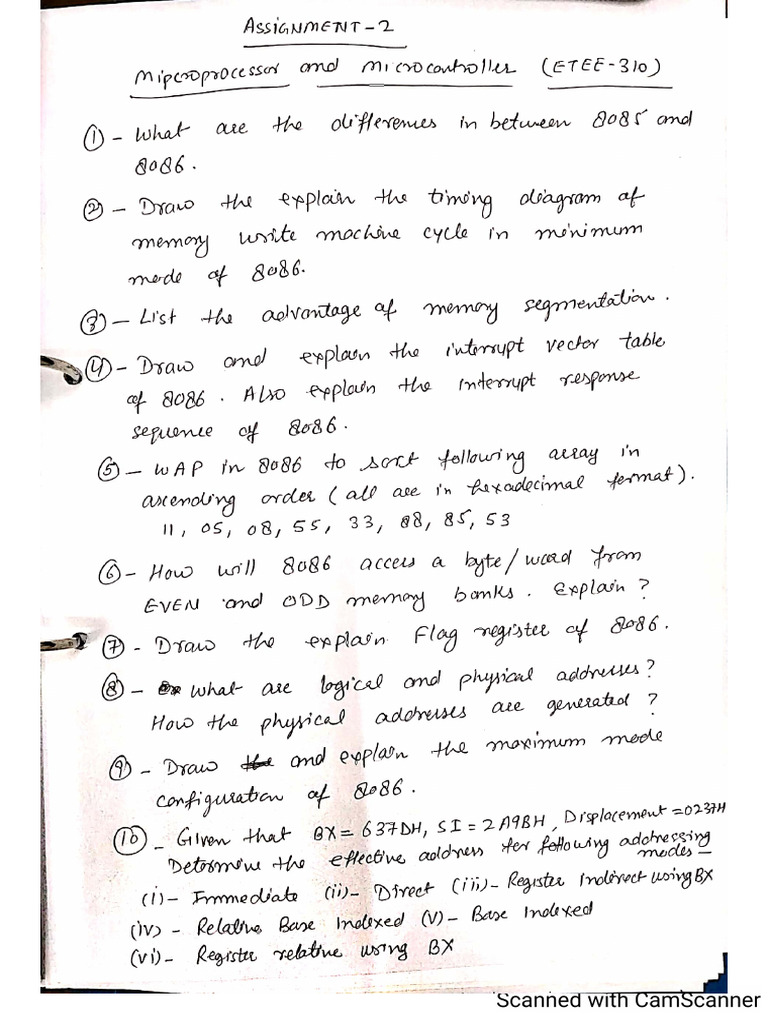 ASSIGNMENT-2
Mipcroprocessor and Microcontroller (ETEE-310)
① - What are the differences in between 8085 and
8086.
② - Draw the explain the timing diagram of
memory write machine cycle in minimum
mode of 8086.
③ - List the advantage of memory segmentation.
④ - Draw and explain the interrupt vector table
of 8086. Also explain the interrupt response
sequence of 8086.
⑤ - WAP in 8086 to sort following array in
ascending order (all are in hexadecimal format).
11, 05, 08, 55, 33, 88, 85, 53
⑥ - How will 8086 access a byte/word from
EVEN and ODD memory banks. Explain?
⑦ - Draw the explain Flag register of 8086.
⑧ - What are logical and physical addresses?
How the physical addresses are generated?
⑨ - Draw the and explain the maximum mode
configuration of 8086.
⑩ - Given that BX = 637DH, SI = 2A9BH, Displacement = 0237H
Determine the effective address for following addressing
modes -
(i) - Immediate (ii) - Direct (iii) - Register Indirect using BX
(iv) - Relative Base Indexed (v) - Base Indexed
(vi) - Register relative using BX
Scanned with CamScanner